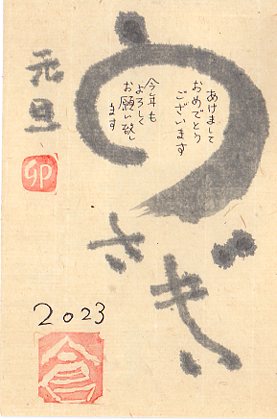 うさぎ
あけまして
おめでとう
ございます
今年も
よろしく
お願い致し
ます
元旦
卯
2023